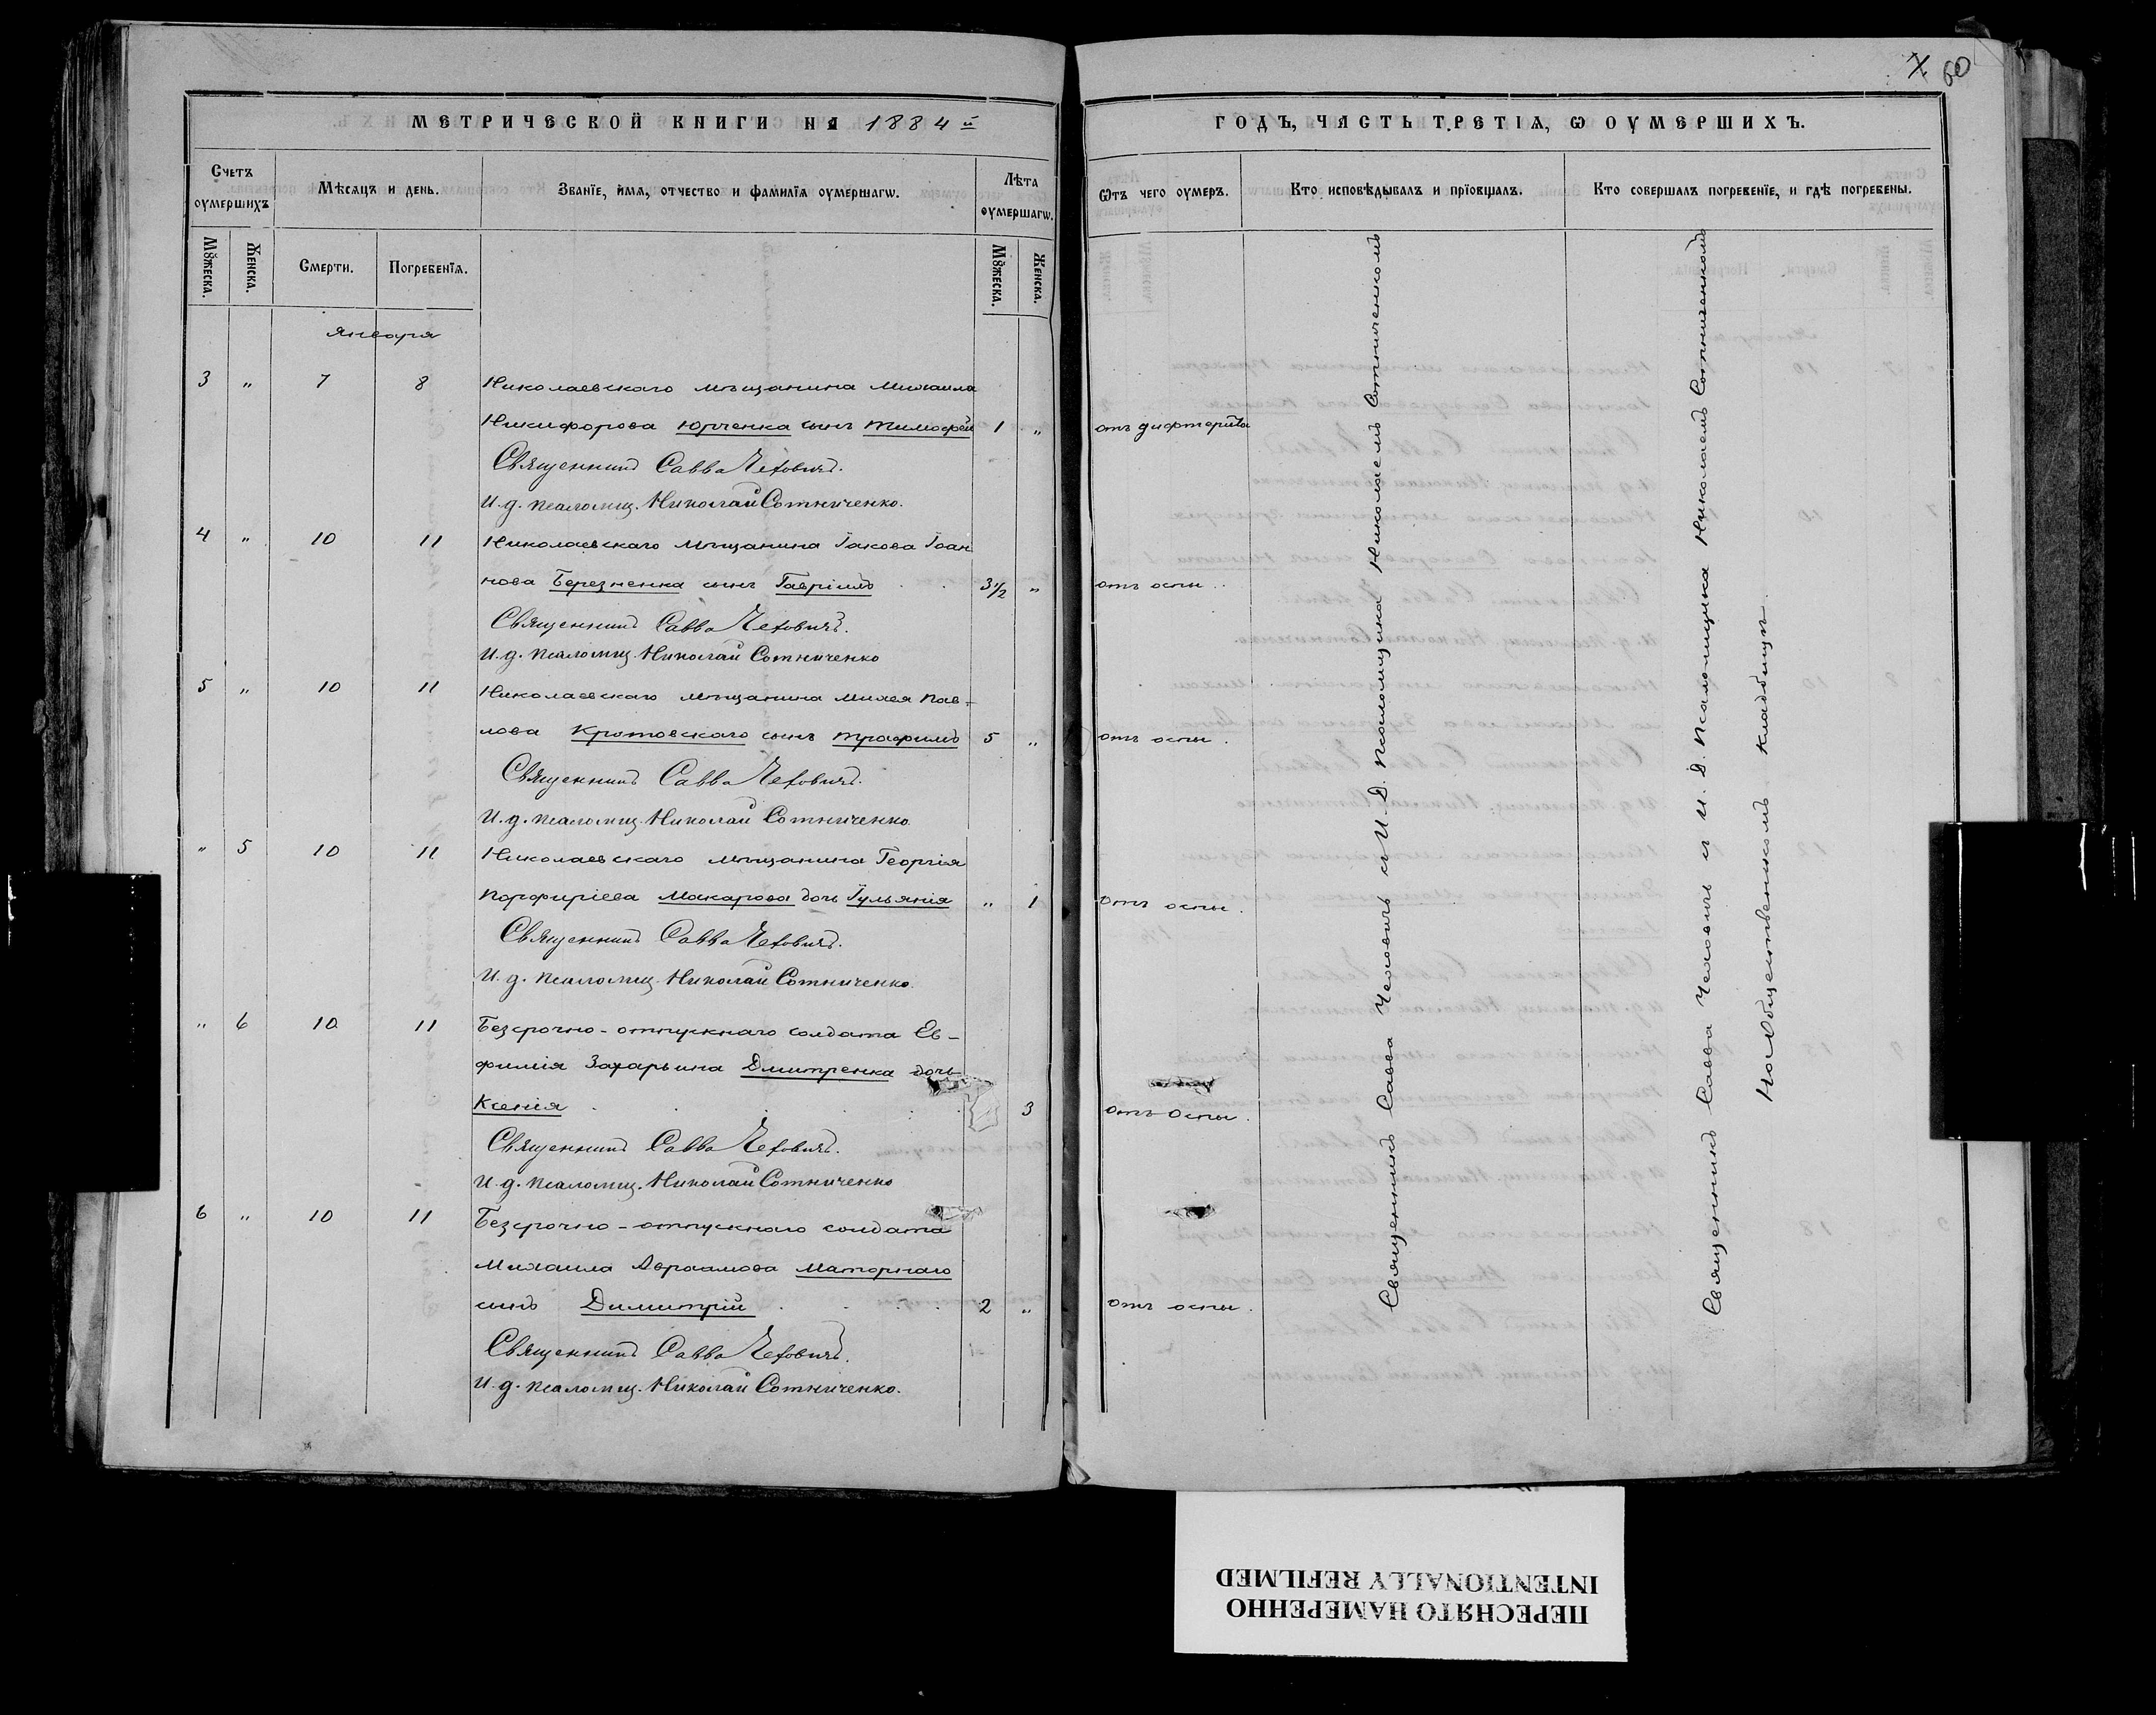 МЕТРИЧЕСКОЙ КНИГИ НА 1884й
Счетъ оумершихъ
Мѣсяцъ и день.
Званїе, имѧ, отчество и фамилїѧ оумершагѡ.
Лѣта оумершагѡ.
Мꙋжеска.
Женска.
Смерти.
Погребенїѧ.
Мꙋжеска.
Женска.
Января
3 " 7 8 Николаевскаго мѣщанина Михаила
Никифорова Юрченка сынъ Тимофей 1 "
Священникъ Савва Чехович.
И. д. псаломщ. Николай Сотниченко.
4 " 10 11 Николаевскаго мѣщанина Іакова Іоан
нова Березненка сынъ Гавріилъ 3 1/2 "
Священникъ Савва Чеховичъ.
И. д. псаломщ. Николай Сотниченко
5 " 10 11 Николаевскаго мѣщанина Михея Пав-
лова Кротовскаго сынъ Трофимъ 5 "
Священникъ Савва Чеховичъ.
И. д. псаломщ. Николай Сотниченко
" 5 10 11 Николаевскаго мѣщанина Георгія
Порфиріева Макарова дочь Іульянія " 1
Священникъ Савва Чеховичъ.
И. д. псаломщ. Николай Сотниченко.
" 6 10 11 Безсрочно-отпускнаго солдата Ев-
фимія Захарьина Дмитренка дочь
Ксенія 3
Священникъ Савва Чеховичъ.
И. д. псаломщ. Николай Сотниченко
6 " 10 11 Безсрочно-отпускнаго солдата
Михаила Авраамова Маторнаго
сынъ Димитрій 2 "
Священникъ Савва Чеховичъ.
И. д. псаломщ. Николай Сотниченко.
60
ГОДЪ, ЧАСТЬ ТРЕТІѦ, Ѡ ОУМЕРШИХЪ.
Ѿтъ чего оумеръ.
Кто исповѣдывалъ и прїобщалъ.
Кто совершалъ погребенїе, и гдѣ погребены.
отъ дифтерита
отъ оспы.
отъ оспы.
отъ оспы.
отъ оспы.
отъ оспы.
Священникъ Савва Чеховичъ съ И. Д. Псаломщика Николаемъ Сотниченкомъ
Священникъ Савва Чеховичъ съ И. Д. Псаломщика Николаемъ Сотниченкомъ
На Общественномъ кладбищѣ.
ПЕРЕСНЯТО НАМЕРЕННО
INTENTIONALLY REFILMED